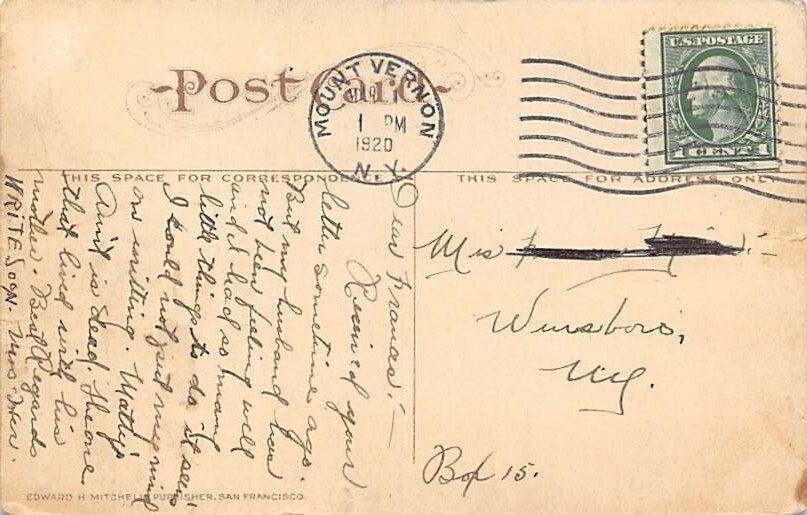 Post Card
MOUNT VERNON
1 PM
1920
N.Y.
U.S. POSTAGE
1 CENT 1
THIS SPACE FOR CORRESPONDENCE
THIS SPACE FOR ADDRESS ONLY
Dear Frances:—
Received your
letter sometime ago.
But my husband has
not been feeling well
and I had so many
little things to do it seems
I could not put my mind
on writting. Matty's
Aunt is dead. The one
that lived with his
mother. Best Regards
WRITE SOON. Mrs
Miss
Wursboro,
N.Y.
Box 15.
EDWARD H. MITCHELL, PUBLISHER, SAN FRANCISCO.